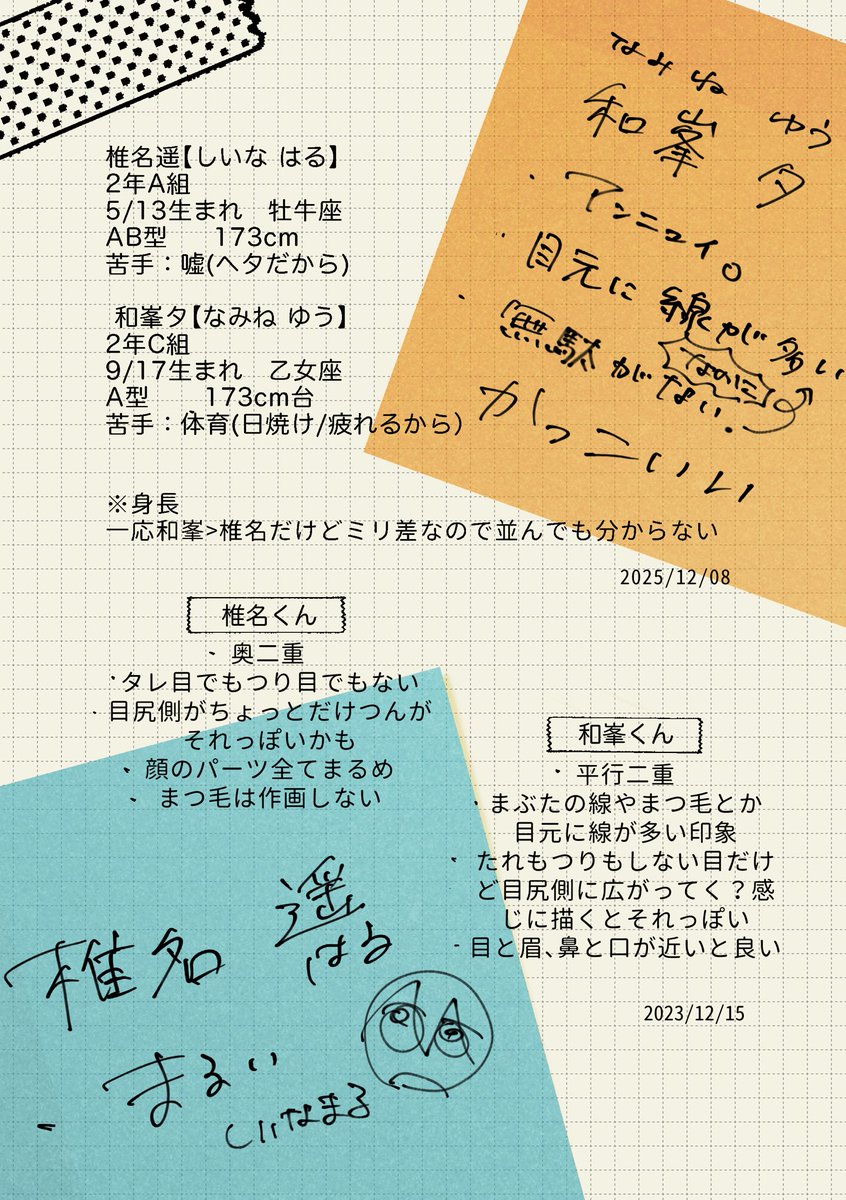 なみね ゆう
和峯 夕
・アンニュイ。
・目元に線が多い
・無駄がない。
なのに
かっこいい
椎名遥【しいな はる】
2年A組
5/13生まれ　牡牛座
AB型　　173cm
苦手：嘘(ヘタだから)
和峯夕【なみね ゆう】
2年C組
9/17生まれ　乙女座
A型　　173cm台
苦手：体育(日焼け/疲れるから)
※身長
一応和峯>椎名だけどミリ差なので並んでも分からない
2025/12/08
椎名くん
・奥二重
・タレ目でもつり目でもない
・目尻側がちょっとだけつんが
それっぽいかも
・顔のパーツ全てまるめ
・まつ毛は作画しない
和峯くん
・平行二重
・まぶたの線やまつ毛とか
目元に線が多い印象
・たれもつりもしない目だけ
ど目尻側に広がってく？感
じに描くとそれっぽい
・目と眉、鼻と口が近いと良い
2023/12/15
椎名 遥
はる
・まるい
しいなまる